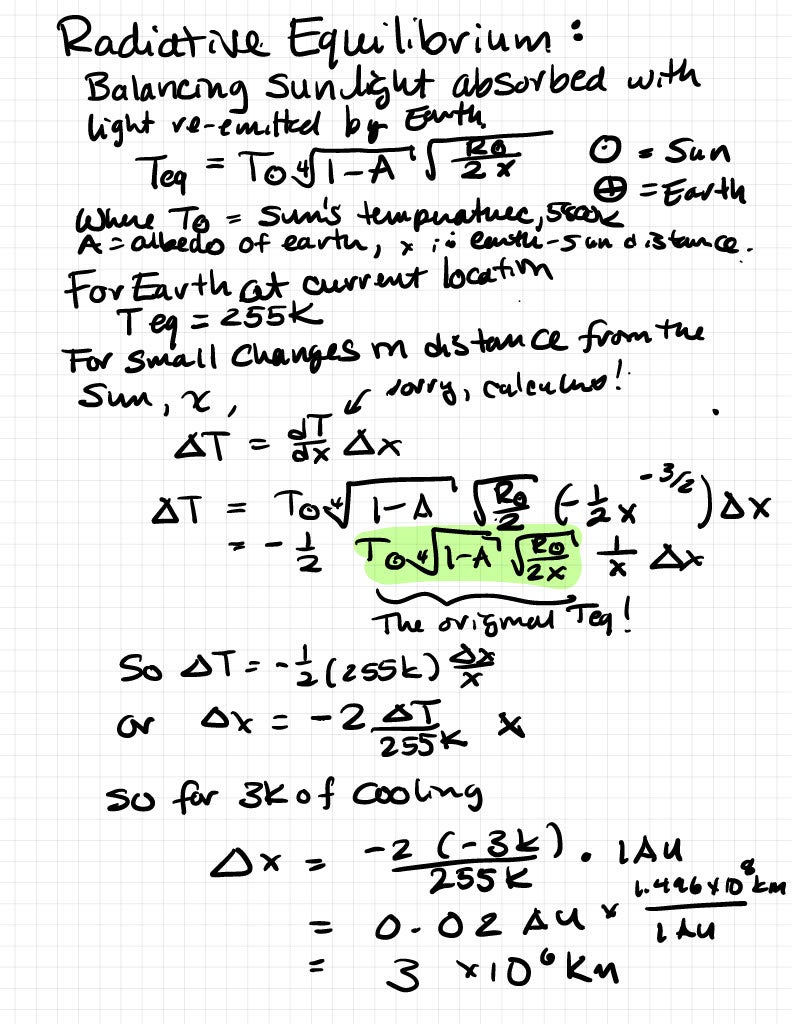 Radiative Equilibrium:
Balancing sunlight absorbed with
light re-emitted by Earth
Teq = T☉ ∜(1-A) √(R☉/2x) ☉ = Sun
⊕ = Earth
Where T☉ = Sun's temperature, 5800K
A = albedo of earth, x is earth-sun distance.
For Earth at current location
Teq = 255K
For small changes in distance from the
Sun, x, sorry, calculus!
ΔT = dT/dx Δx
ΔT = T☉ ∜(1-A) √(R☉/2) (-1/2 x^-3/2) Δx
= - 1/2 T☉ ∜(1-A) √(R☉/2x) 1/x Δx
The original Teq!
So ΔT = -1/2 (255K) Δx/x
or Δx = -2 ΔT/255K x
So for 3K of cooling
Δx = -2 (-3K)/255K · 1AU
= 0.02 AU × 1.496×10^8 km/1 AU
= 3 ×10^6 Km